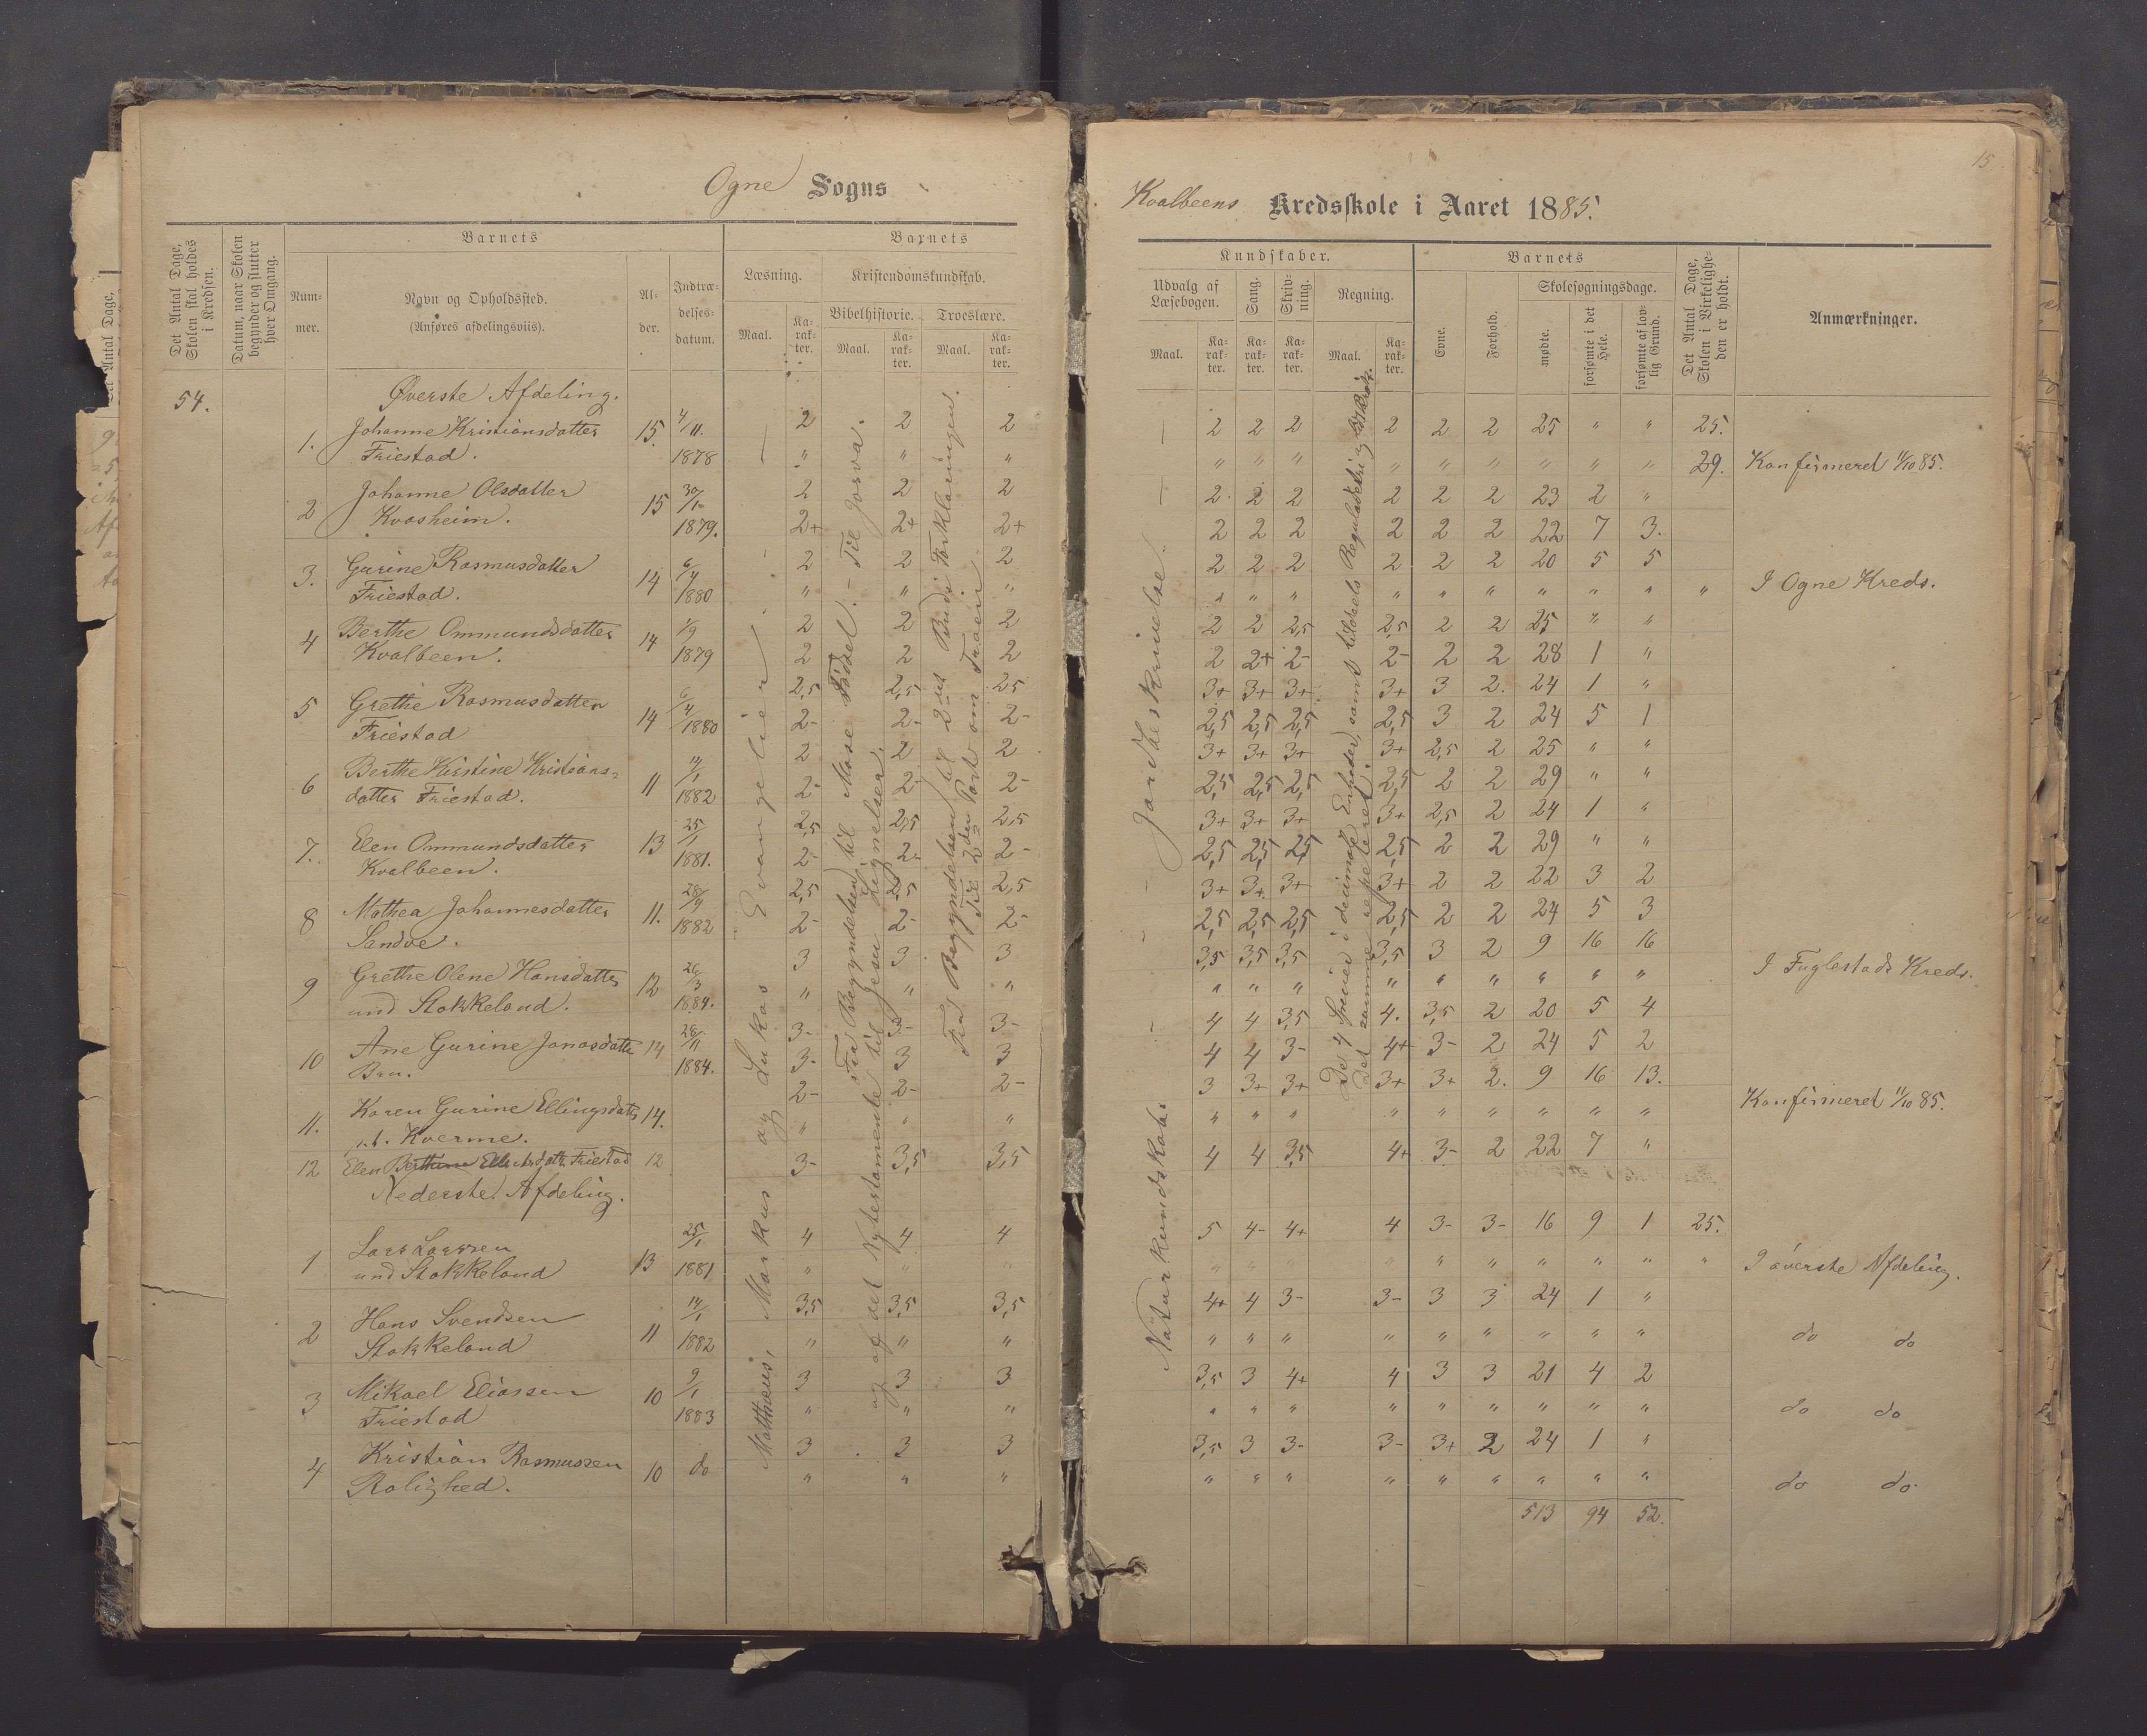 Ogne Sogns
Det Antal Dage, Skolen skal holdes i Kredsen.
Datum, naar Skolen begynder og slutter hver Omgang.
Barnets
Barnets
Num-
mer.
Navn og Opholdssted.
(Anføres afdelingsviis).
Al-
der.
Indtræ-
delses-
datum.
Læsning.
Kristendomskundskab.
Bibelhistorie.
Troeslære.
Maal.
Ka-
rak-
ter.
Maal.
Ka-
rak-
ter.
Maal.
Ka-
rak-
ter.
54.
Øverste Afdeling.
1. Johanne Kristiansdatter 15. 4/11. 2 2 2
Friestad. 1878 " " "
2 Johanne Olsdatter 15 30/10 2 2 2
Kvasheim. 1879. 2+ 2+ 2+
3. Gurine Rasmusdatter 14 6/4 2 2 2
Friestad. 1880 " " "
4 Berthe Ommundsdatter 14 1/9 2 2 2
Kvalbeen. 1879 2 2 2
5 Grethe Rasmusdatter 14 6/4 2,5 2,5 2,5
Friestad 1880 2- 2- 2-
6 Berthe Kirstine Kristians= 11 14/1 2 2 2
datter Friestad. 1882 2- 2- 2-
7. Elen Ommundsdatter 13 25/1 2,5 2,5 2,5
Kvalbeen. 1881. 2- 2- 2-
8 Mathea Johannesdatter 11. 28/9 2,5 2,5 2,5
Sandve. 1882 2- 2- 2-
9 Grethe Olene Hansdatter 12 26/3 3 3 3
und Stokkeland. 1884. " " "
10 Ane Gurine Jonasdatte 14 26/11 3- 3- 3-
Bru. 1884. 3- 3 3
11. Karen Gurine Ellingsdatt 14. 2- 2- 2-
Kverme. " " "
12 Elen Friestad 12 3- 3,5 3,5
Nederste Afdeling.
1 Lars Larssen 13 25/1 4 4 4
und Stokkeland 1881 " " "
2 Hans Svendsen 11 14/1 3,5 3,5 3,5
Stokkeland 1882 " " "
3 Mikael Eliassen 10 9/1 3 3 3
Friestad 1883 " " "
4 Kristian Rasmussen 10 do 3 3 3
Rolighed. " " "
Mattheus, Markus og Lukas Evangelier.
Fra Begyndelsen til Mose Fødsel. – Til Josva.
og af det Nytestamente til Jesu Lignelser.
Fra Begyndelsen til 2det Bud i Forklaringen.
Til 2den Part om Troen.
15
Kvalbeens Kredsskole i Aaret 1885.
Kundskaber.
Barnets
Udvalg af
Læsebogen.
Sang.
Skriv-
ning.
Regning.
Evne.
Forhold.
Skolesøgningsdage.
mødte.
forsømte i det Hele.
forsømte af lov-
lig Grund.
Det Antal Dage, Skolen i Virkelighe-
den er holdt.
Anmærkninger.
Maal.
Ka-
rak-
ter.
Ka-
rak-
ter.
Ka-
rak-
ter.
Maal.
Ka-
rak-
ter.
2 2 2 2 2 2 25 " " 25.
" " " " " " " " " 29. Konfirmeret 11/10 85.
2 2 2 2 2 2 23 2 "
2 2 2 2 2 2 22 7 3.
2 2 2 2 2 2 20 5 5
" " " " " " " " " " I Ogne Kreds.
2 2 2,5 2,5 2 2 25 " "
2 2+ 2- 2- 2 2 28 1 "
3+ 3+ 3+ 3+ 3 2. 24 1 "
2,5 2,5 2,5 2,5 3 2 24 5 1
3+ 3+ 3+ 3+ 2,5 2 25 " "
2,5 2,5 2,5 2,5 2 2 29 " "
3+ 3+ 3+ 3+ 2,5 2 24 1 "
2,5 2,5 2,5 2,5 2 2 29 " "
3+ 3+ 3+ 3+ 2 2 22 3 2
2,5 2,5 2,5 2,5 2 2 24 5 3
3,5 3,5 3,5 3,5 3 2 9 16 16
" " " " " " " " " I Fuglestads Kreds.
4 4 3,5 4. 3,5 2 20 5 4
4 4 3- 4+ 3- 2 24 5 2
3 3+ 3+ 3+ 3+ 2. 9 16 13.
" " " " " " " " " Konfirmeret 11/10 85.
4 4 3,5 4+ 3- 2 22 7 "
5 4- 4+ 4 3- 3- 16 9 1 25.
" " " " " " " " " " I øverste Afdeling.
4+ 4 3- 3- 3 3 24 1 "
" " " " " " " " " do do
3,5 3 4+ 4 3 3 21 4 2
" " " " " " " " " do do
3,5 3 3- 3- 3+ 2 24 1 "
" " " " " " " " " do do
513 94 52.
Naturkundskab. – Jordbeskrivelse.
De 4 Specier i decimale Enheder, samt Reguladetri
Det samme repeteret.